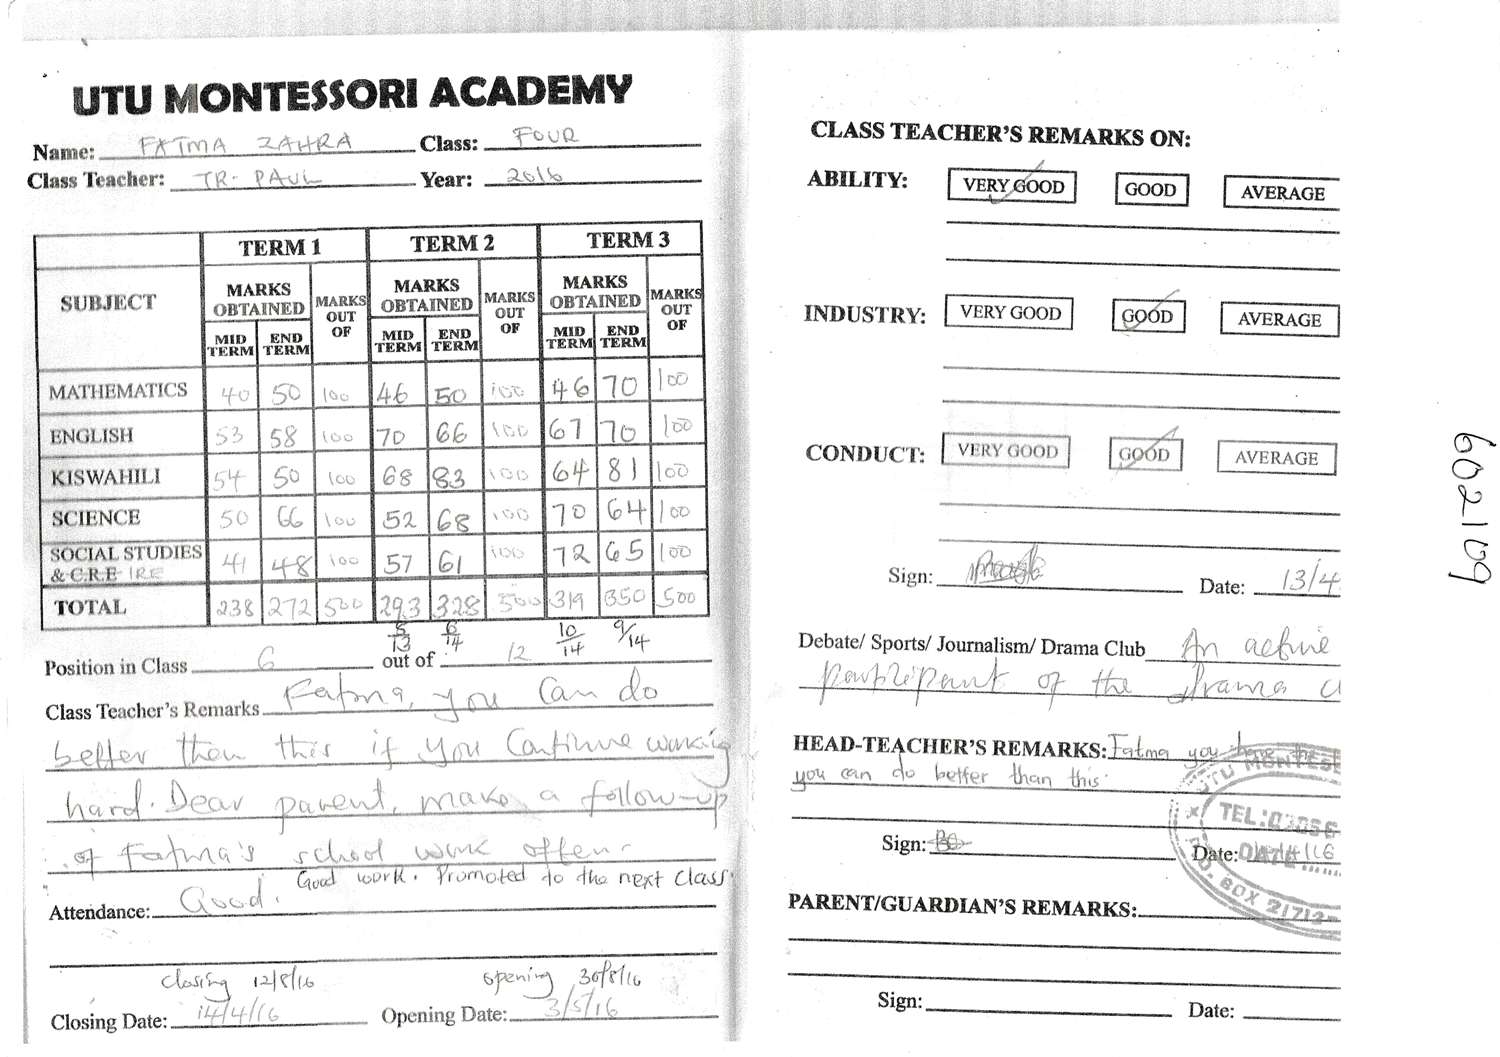 UTU MONTESSORI ACADEMY
Name: FATMA ZAHRA Class: FOUR
Class Teacher: TR. PAUL Year: 2016
SUBJECT TERM 1 TERM 2 TERM 3
MARKS OBTAINED MARKS OUT OF MARKS OBTAINED MARKS OUT OF MARKS OBTAINED MARKS OUT OF
MID TERM END TERM MID TERM END TERM MID TERM END TERM
MATHEMATICS 40 50 100 46 50 100 46 70 100
ENGLISH 53 58 100 70 66 100 67 70 100
KISWAHILI 54 50 100 68 83 100 64 81 100
SCIENCE 50 66 100 52 68 100 70 64 100
SOCIAL STUDIES & C.R.E IRE 41 48 100 57 61 100 72 65 100
TOTAL 238 272 500 293 328 500 319 350 500
5/13 6/14 10/14 9/14
Position in Class 6 out of 12
Class Teacher's Remarks Fatma, you Can do
better then this if you Continue working
hard. Dear parent, make a follow-up
of Fatma's school work often.
Good work. Promoted to the next class.
Attendance: Good.
closing 12/8/16 opening 30/8/16
Closing Date: 14/4/16 Opening Date: 3/5/16
CLASS TEACHER'S REMARKS ON:
ABILITY: VERY GOOD GOOD AVERAGE
INDUSTRY: VERY GOOD GOOD AVERAGE
CONDUCT: VERY GOOD GOOD AVERAGE
Sign: Date: 13/4
Debate/ Sports/ Journalism/ Drama Club An active
participant of the drama cl
HEAD-TEACHER'S REMARKS: Fatma you have the
you can do better than this.
UTU MONTESS
TEL:0
Sign: Date: /4/16
DATE
BOX 21712
PARENT/GUARDIAN'S REMARKS:
Sign: Date:
602109